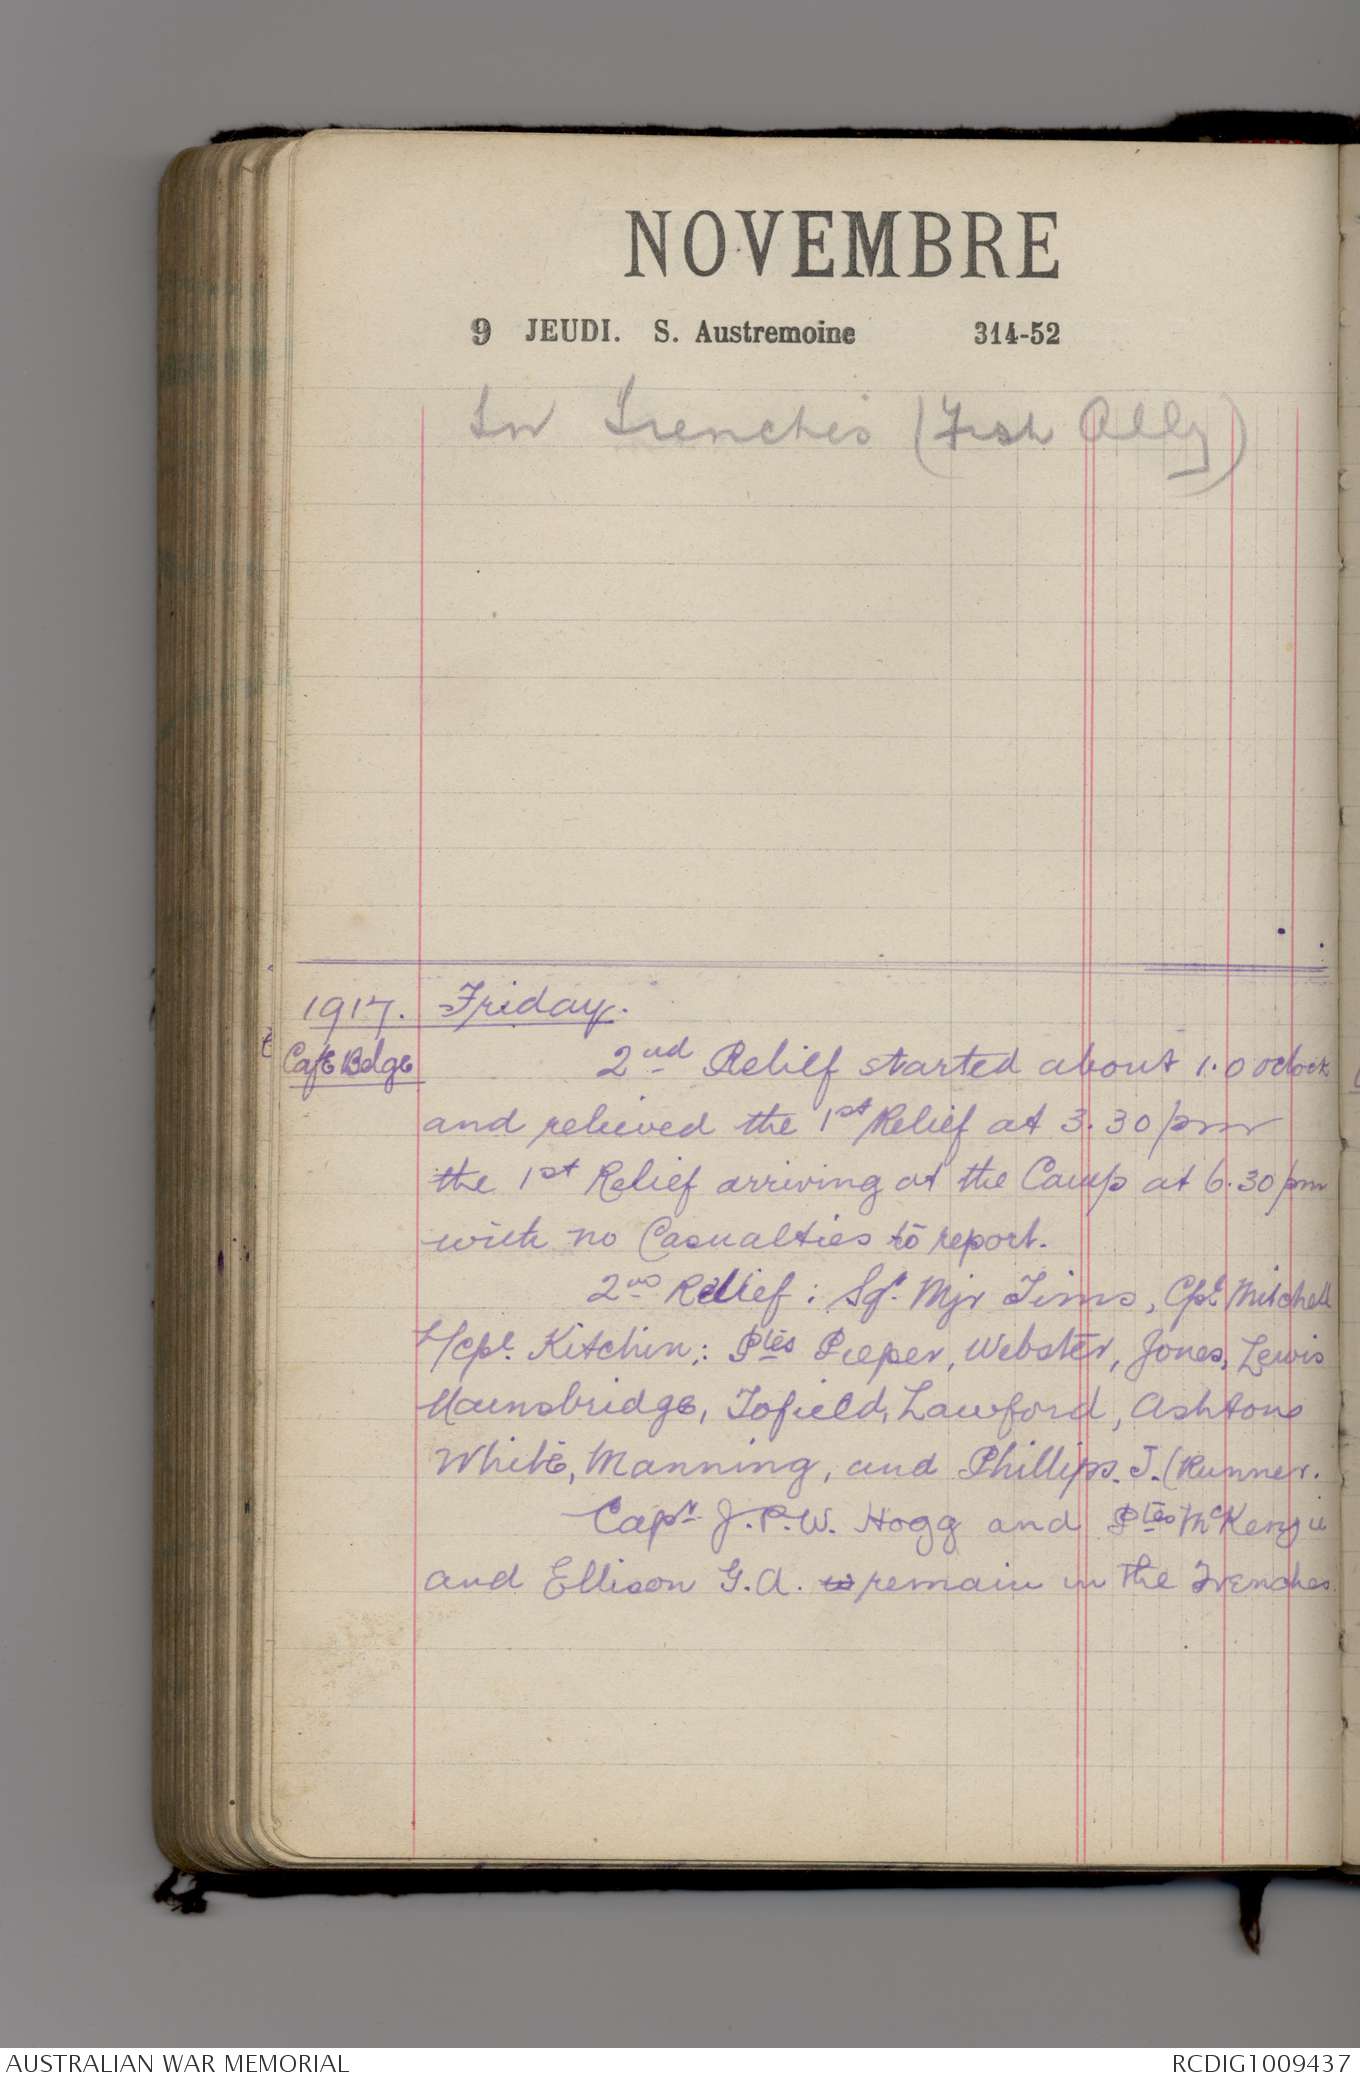 NOVEMBRE
9 JEUDI. S. Austremoine 314-52
In Trenches (Fish Ally)
1917. Friday.
Café Belge 2nd Relief started about 1.0 oclock
and relieved the 1st Relief at 3.30 pm
the 1st Relief arriving at the Camp at 6.30 pm
with no Casualties to report.
2nd Relief: Sgt. Mjr Tims, Cpl Mitchell
L/cpl. Kitchin; Ptes Pieper, Webster, Jones, Lewis
Mainsbridge, Tofield, Lawford, Ashton
White, Manning, and Phillips. J. (Runner.
Capt J.P.W. Hogg and Ptes McKenzie
and Ellison G.A. remain in the Trenches
AUSTRALIAN WAR MEMORIAL RCDIG1009437